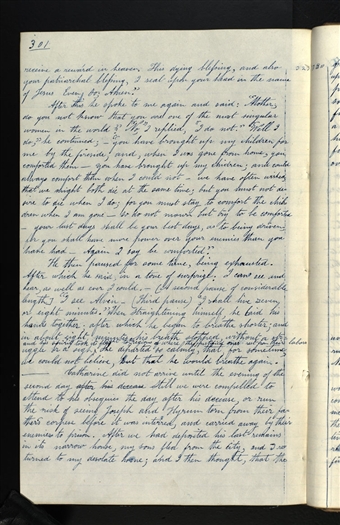 301
receive a reward in heaven. This dying blessing, and also
your patriarchal blessing, I seal upon your head in the name
of Jesus Even so; Amen."
After this he spoke to me again and said: "Mother,
do you not know that you are one of the most singular
women in the world?" "No," I replied, "I do not." "Well I
do," he continued; – you have brought up my children for
me by the fireside; and, when I was gone from home, you
comforted them – you have brought up my children; and could
always comfort them when I could not – we have often wished,
that we might both die at the same time; but you must not de-
sire to die when I do; for you must stay to comfort the chil-
dren when I am gone – so do not mourn but try to be comforted.
– your last days shall be your best days, as to being driven;
for you shall have more power over your enemies than you
have had. Again I say be comforted."
He then paused for some time, being exhausted.
After which he said, in a tone of surprise, I can see and
hear, as well as ever I could. – (A second pause of considerable
length) "I see Alvin – (third pause) "I shall live seven,
or eight minutes." Then straightening himself, he laid his
hands together; after which he began to breathe shorter; and
in about eight minutes his breath stopped, without a str-
uggle or a sigh; departed so calmly, that for some time,
we could not believe but that he would breathe again.
Catharine did not arrive until the evening of the
second day after his decease. Still we were compelled to
attend to his obsequies the day after his decease, or run
the risk of seeing Joseph and Hyrum torn from their fa-
thers corpse before it was interred, and carried away by their
enemies to prison. After we had deposited his last remains
in its narrow house, my sons fled from the city, and I re-
turned to my desolate home; and I then thought, that the